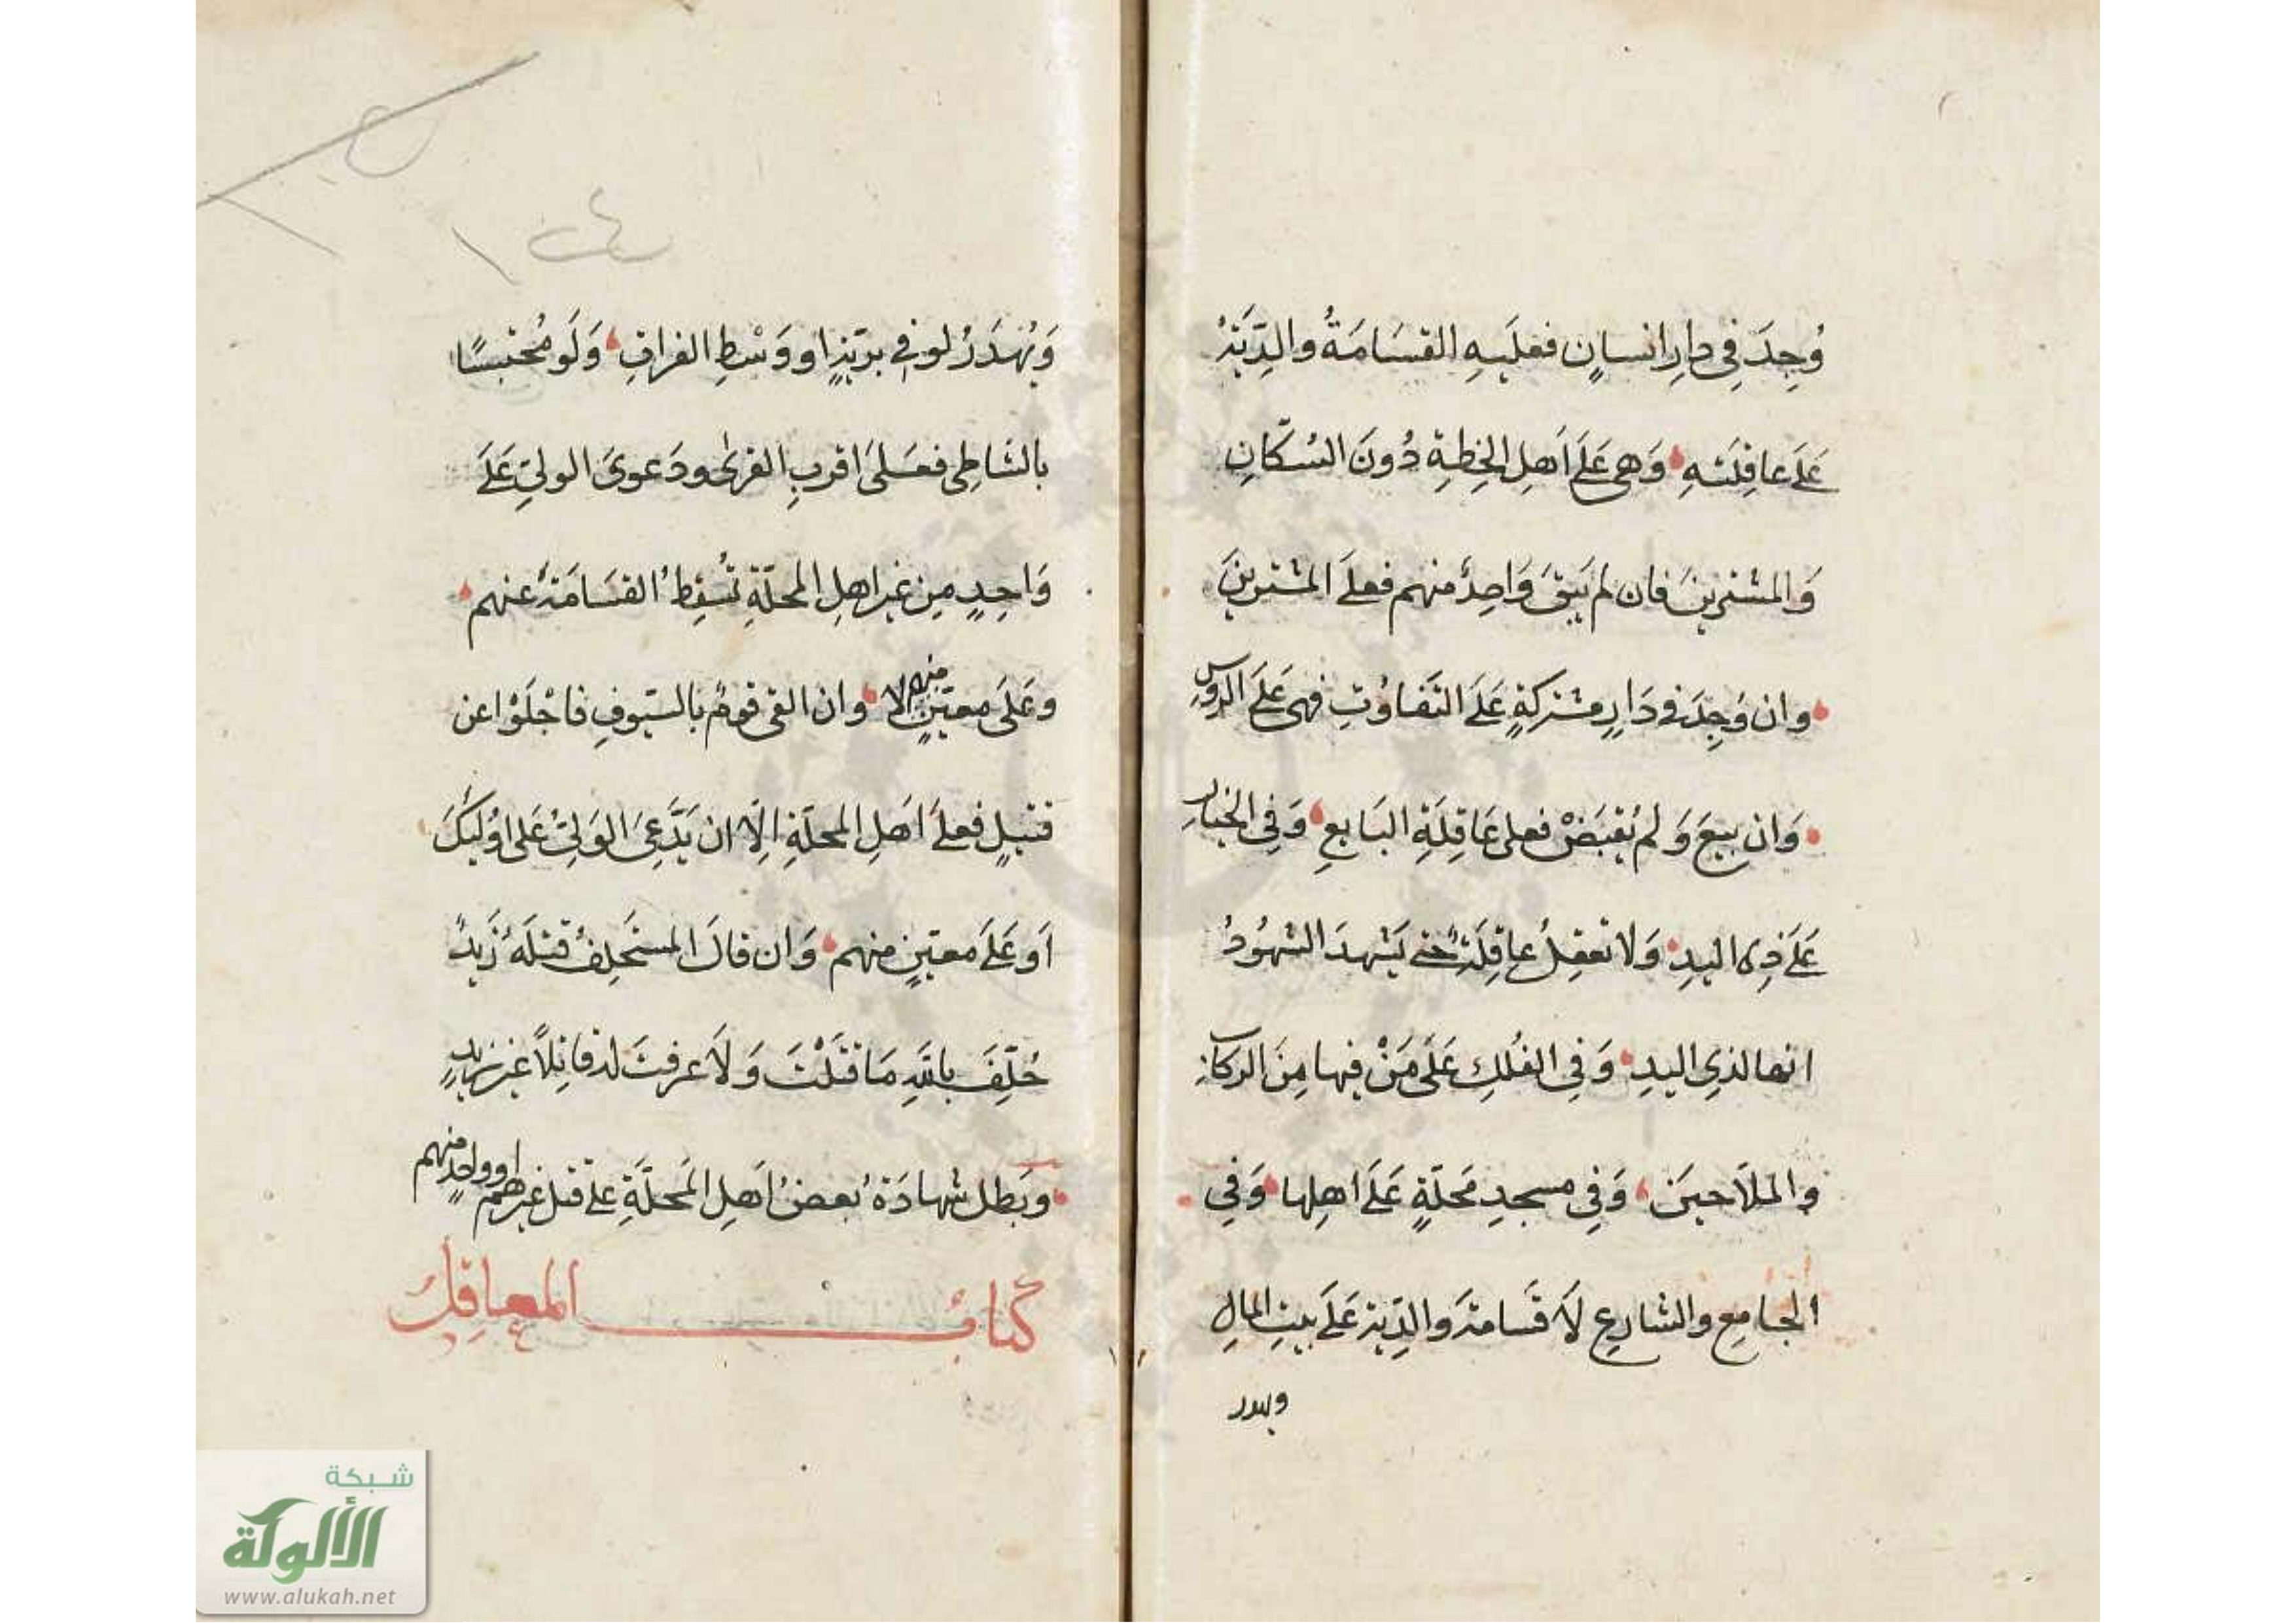 وُجِدَ في دارِ انسانٍ فعلَيهِ القسَامَةُ والدِّيَةُ
عَلَى عاقِلَتهِ وَهى عَلَى اَهلِ الخِطةِ دُونَ السُكّانِ
وَالمشترينَ فان لم يَبقَ وَاحِدٌ منهم فعلَى المشترينَ
وان وُجِدَ فى دَارٍ مشتركةٍ عَلَى التَفَاوُتِ فهى عَلَى الرُؤسِ
وَان بِيعَ وَلم يُقبَضْ فعلى عَاقِلَةِ البَايعِ وَفِى الخيارِ
عَلَى ذِى اليدِ وَلا تعقِلُ عاقِلَةٌ حتى يَشهدَ الشهُودُ
انها لذِى اليدِ وَفِى الفُلكِ عَلَى مَنْ فيها مِنَ الركابِ
والملاَحينَ وَفِى مسجدِ مَحلّةٍ عَلَى اهلِها وَفِى
الجامِعِ والشارعِ لاَ قسَامةَ والدِّيَة عَلَى بيتِ المالِ
ويهدر
وَيُهدَرُ لو فى بريّةٍ او وَسْطِ الفراتِ وَلَو مُحتبسًا
بالشاطِى فعَلَى اقربِ القرىٰ ودَعوىَ الولىِّ عَلَى
وَاحِدٍ مِن غيرِ اهلِ المحلّةِ تُسقِطُ القسَامَةَ عنهم
وعَلَى معيّنٍ منهم لا وان التقى قومٌ بالسّيوفِ فاجْلَوْا عن
قتيلٍ فعلَى اَهلِ المحلّةِ اِلّا ان يَدَّعِىَ الوَلِىُّ عَلى اوُلٓئِكَ
اَو عَلَى معيّنٍ منهم وَان قالَ المستَحلِفُ قتلَهُ زَيدٌ
حُلِّفَ باللهِ مَا قتَلْتُ وَلاَ عرفتُ له قاتِلاً غيرَ زيدٍ
وبَطل شهادَةُ بعضُ اَهلِ المَحلّةِ على قتل غيرهم او واحدٍ منهم
كتابُ المعاقِل
شبكة
الألوكة
www.alukah.net